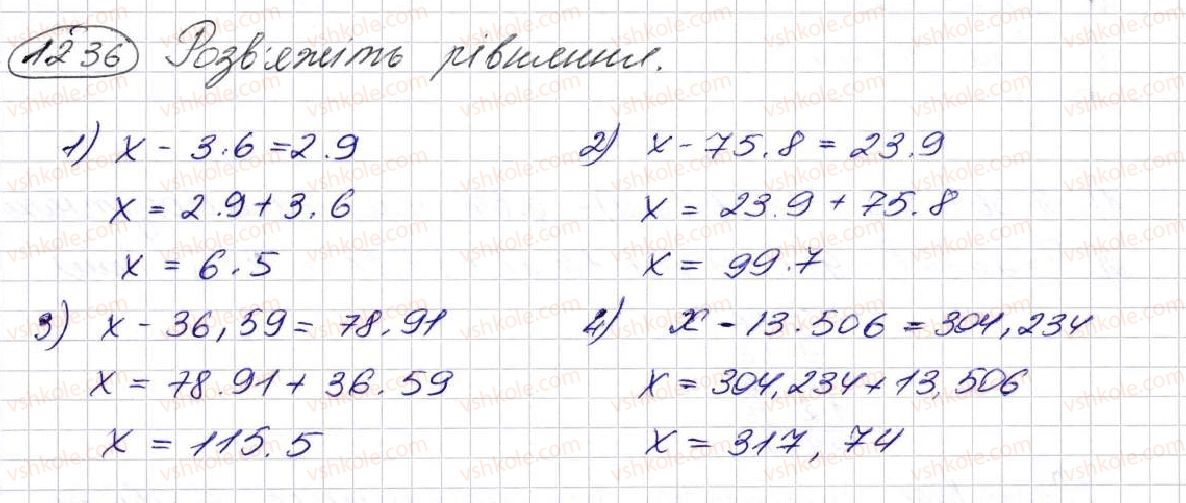 1236 Розв'яжіть рівняння.
1) x - 3.6 = 2.9
x = 2.9 + 3.6
x = 6.5
2) x - 75.8 = 23.9
x = 23.9 + 75.8
x = 99.7
3) x - 36,59 = 78.91
x = 78.91 + 36.59
x = 115.5
4) x - 13.506 = 304,234
x = 304,234 + 13,506
x = 317,74